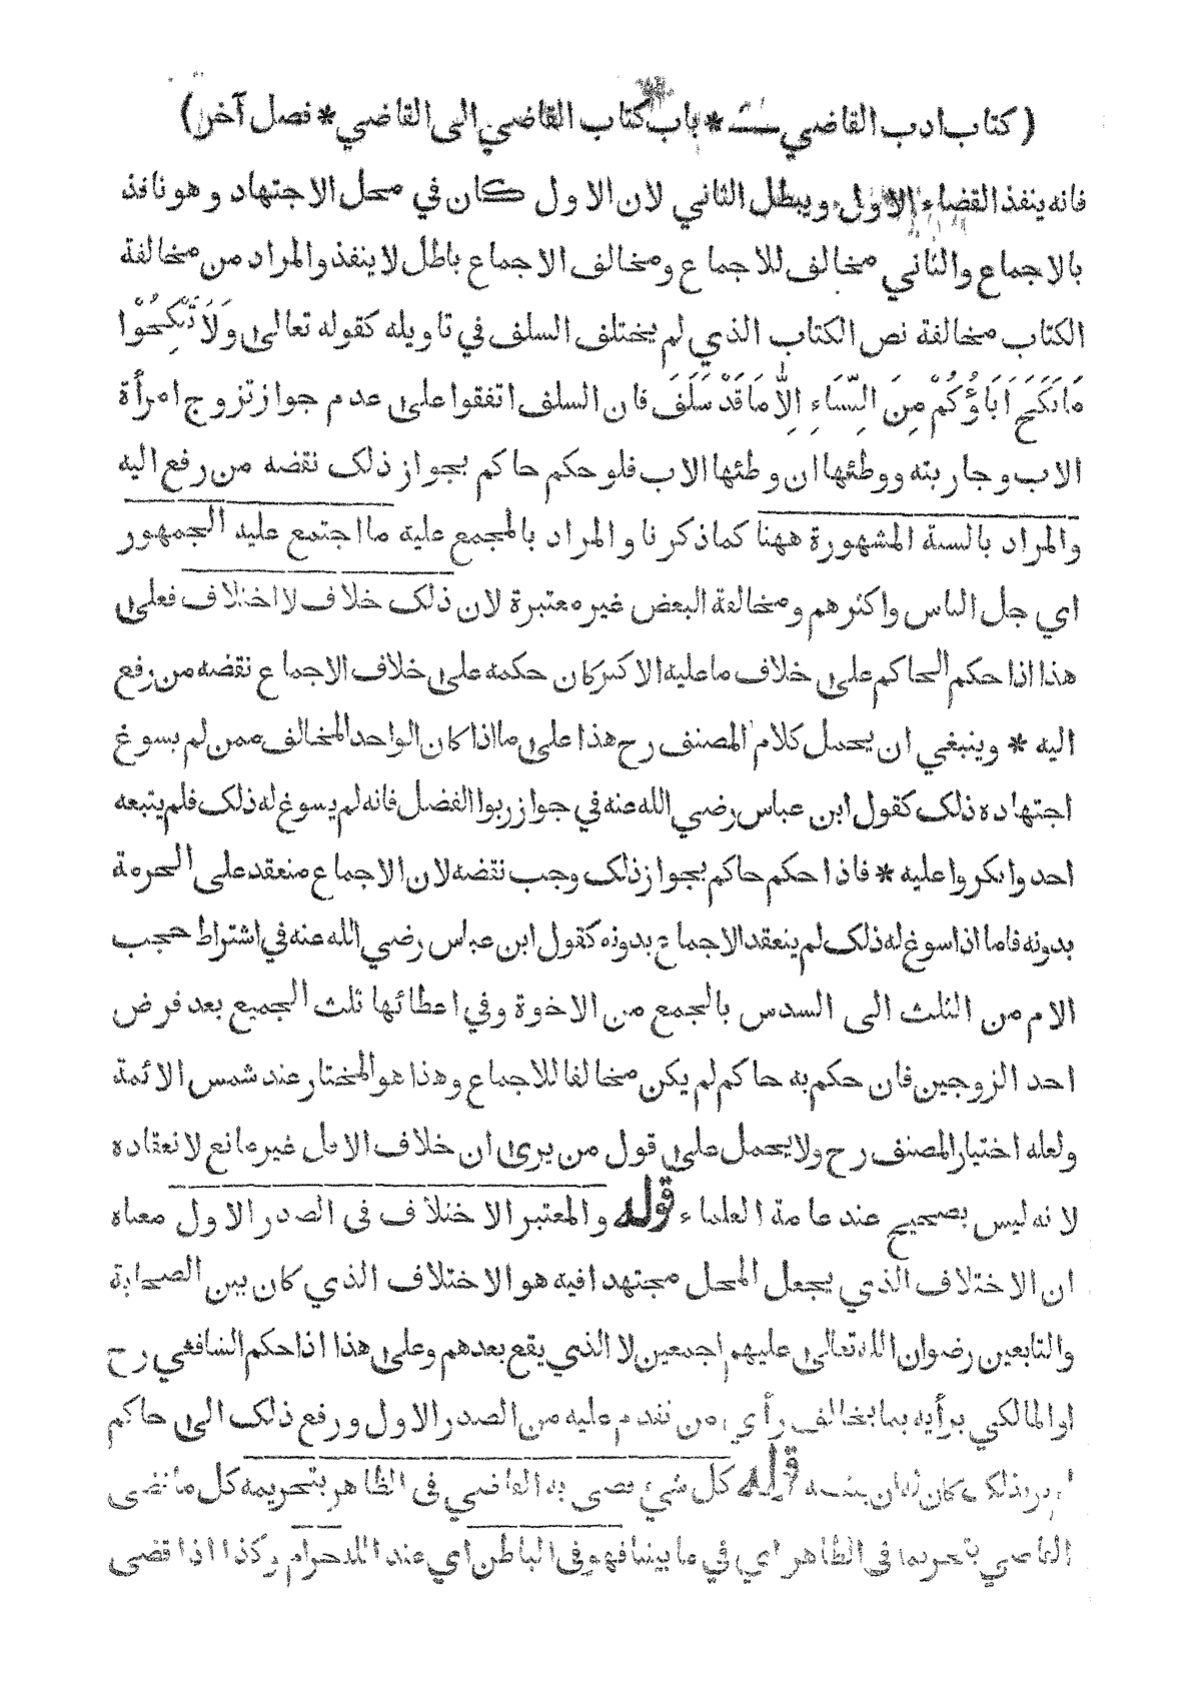 ( كتاب ادب القاضي * باب كتاب القاضي الى القاضي * فصل آخر )
فانه ينفذ القضاء الاول ويبطل الثاني لان الاول كان في محل الاجتهاد وهو نافذ
بالاجماع والثاني مخالف للاجماع ومخالف الاجماع باطل لا ينفذ والمراد من مخالفة
الكتاب مخالفة نص الكتاب الذي لم يختلف السلف في تاويله كقوله تعالى وَلَا تَنْكِحُوْا
مَا نَكَحَ اَبَاؤُكُمْ مِنَ النِّسَاءِ اِلَّا مَا قَدْ سَلَفَ فان السلف اتفقوا على عدم جواز تزوج امرأة
الاب وجاريته ووطئها ان وطئها الاب فلو حكم حاكم بجواز ذلك نقضه من رفع اليه
والمراد بالسنة المشهورة ههنا كما ذكرنا والمراد بالمجمع عليه ما اجتمع عليه الجمهور
اي جل الناس واكثرهم ومخالفة البعض غير معتبرة لان ذلك خلاف لا اختلاف فعلى
هذا اذا حكم الحاكم على خلاف ما عليه الاكثر كان حكمه على خلاف الاجماع نقضه من رفع
اليه * وينبغي ان يحمل كلام المصنف رح هذا على ما اذا كان الواحد المخالف ممن لم يسوغ
اجتهاده ذلك كقول ابن عباس رضي الله عنه في جواز ربوا الفضل فانه لم يسوغ له ذلك فلم يتبعه
احد وانكروا عليه * فاذا حكم حاكم بجواز ذلك وجب نقضه لان الاجماع منعقد على الحرمة
بدونه فاما اذا سوغ له ذلك لم ينعقد الاجماع بدونه كقول ابن عباس رضي الله عنه في اشتراط حجب
الام من الثلث الى السدس بالجمع من الاخوة وفي اعطائها ثلث الجميع بعد فرض
احد الزوجين فان حكم به حاكم لم يكن مخالفا للاجماع وهذا هو المختار عند شمس الائمة
ولعله اختيار المصنف رح ولا يحمل على قول من يرى ان خلاف الاقل غير مانع لانعقاده
لانه ليس بصحيح عند عامة العلماء قوله والمعتبر الاختلاف في الصدر الاول معناه
ان الاختلاف الذي يجعل المحل مجتهدا فيه هو الاختلاف الذي كان بين الصحابة
والتابعين رضوان الله تعالى عليهم اجمعين لا الذي يقع بعدهم وعلى هذا اذا حكم الشافعي رح
او المالكي برأيه بما يخالف رأي من تقدم عليه من الصدر الاول ورفع ذلك الى حاكم
كان له ان ينقضه قوله كل شيء قضى به القاضي في الظاهر بتحريمه كل ما قضى
القاضي بتحريمه في الظاهر اي في ما بيننا فهو في الباطن اي عند الله حرام وكذا اذا قضى